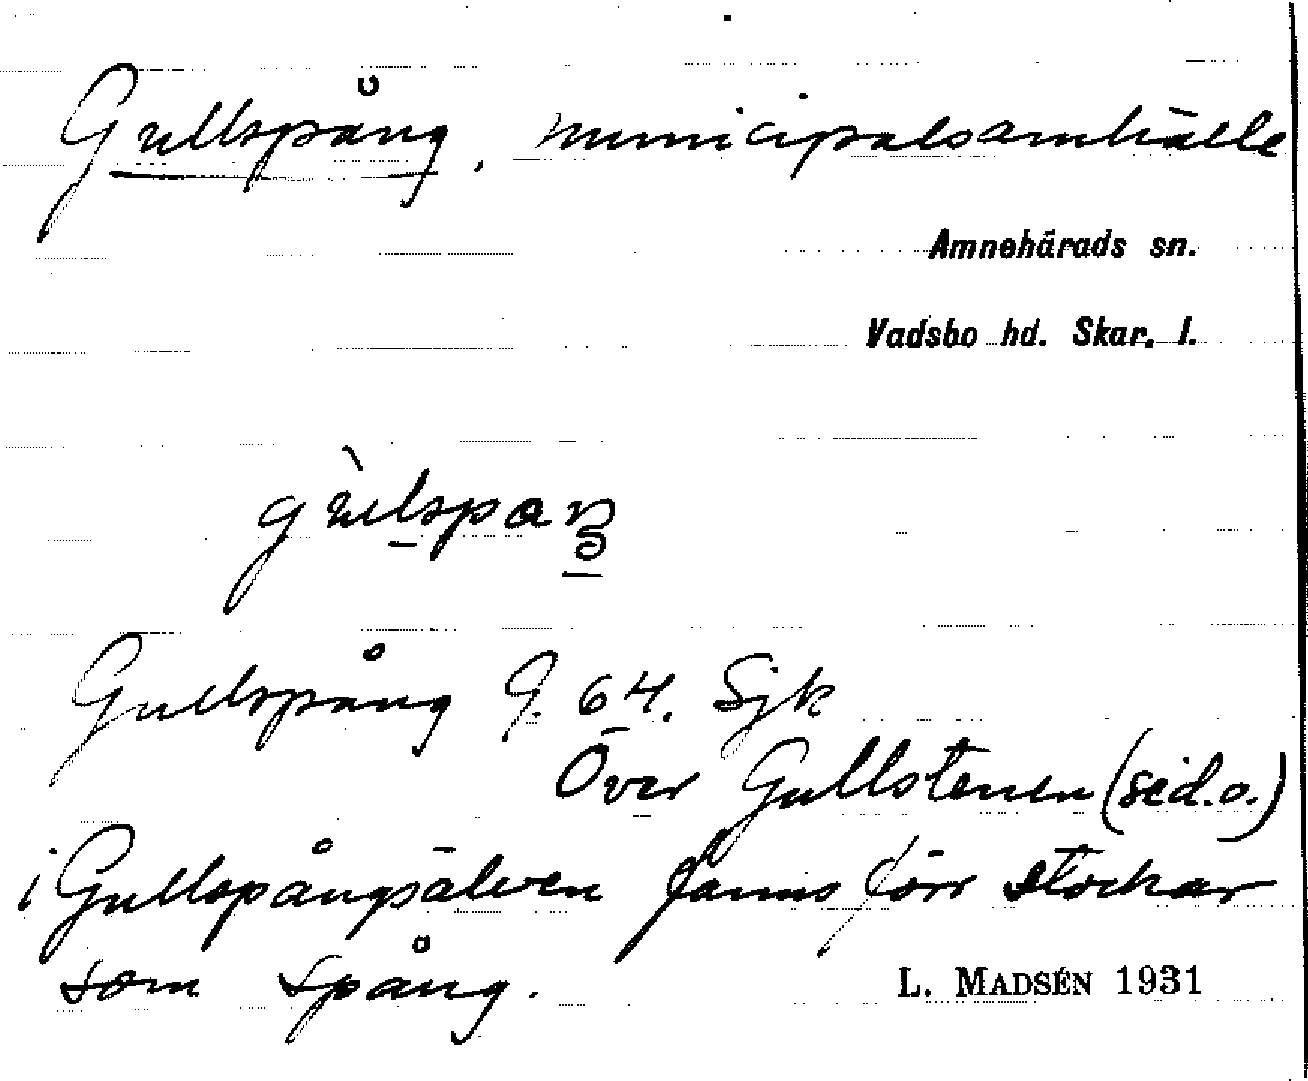 Gullspång, municipalsamhälle
Amnehärads sn.
Vadsbo hd. Skar. l.
Gullspång G. 64. Sjk
Över Gullstenen (se d.o.)
i Gullspångsälven fanns förr stockar
som spång.
L. MADSÉN 1931